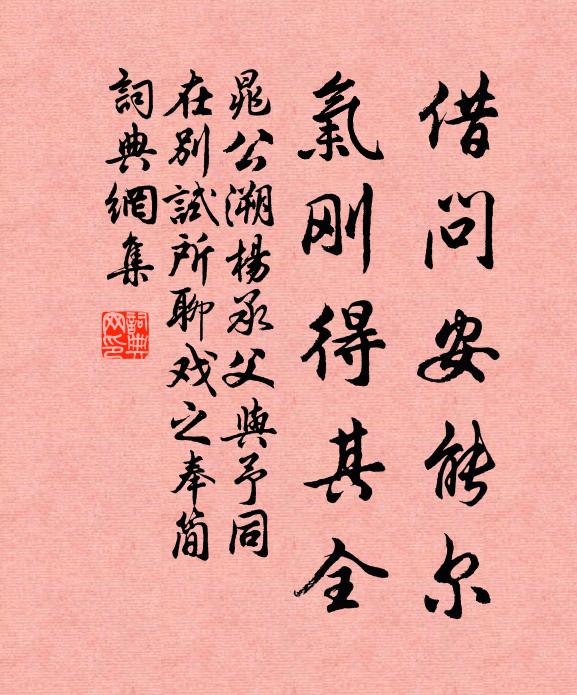 借问安能尔
氣刚得其全
晁公溯楊承父與予同
在别試所聊戏之奉简
詞典網集
詞典網印